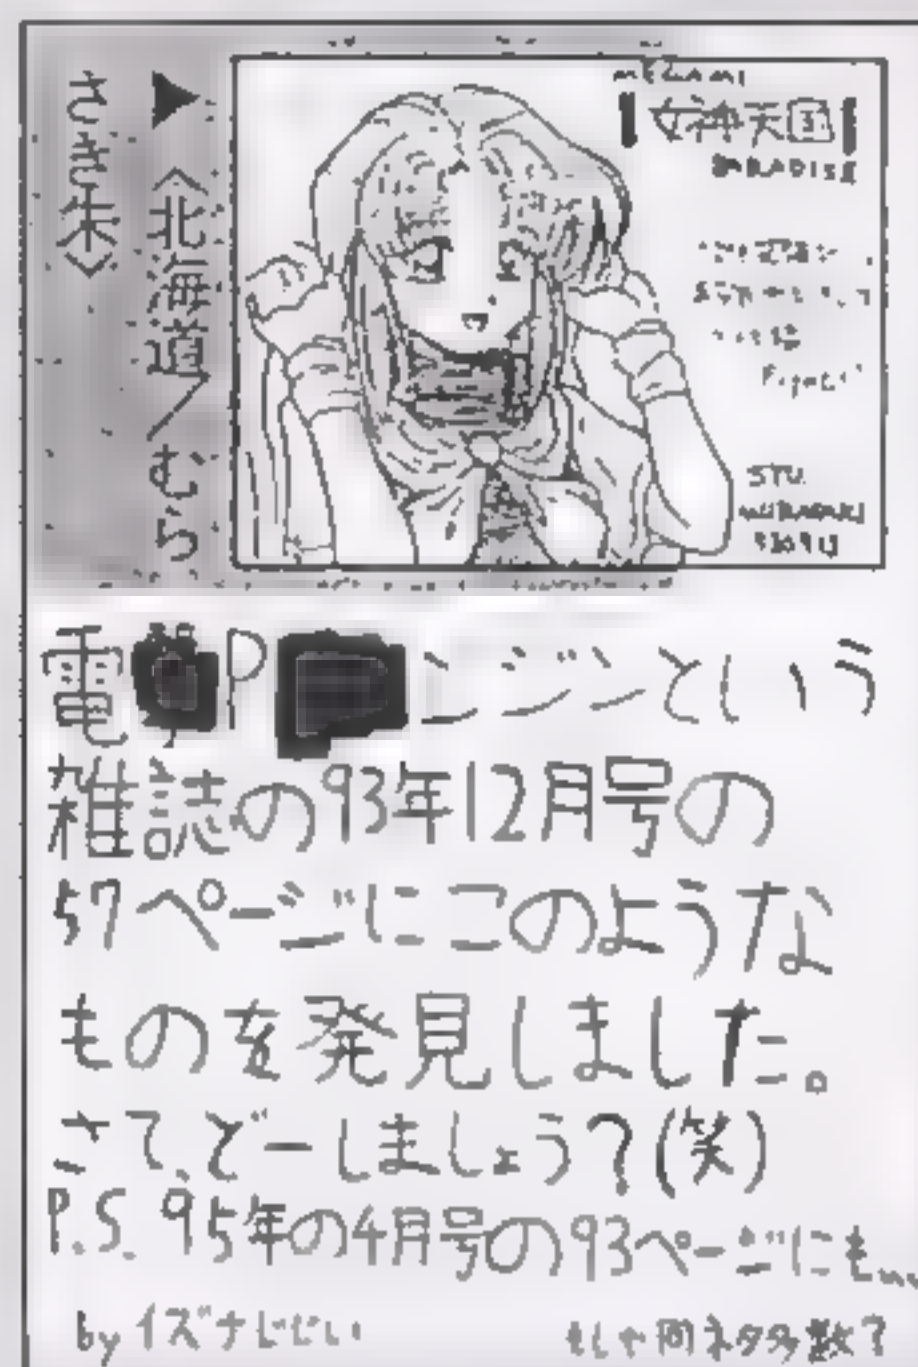 ▶〈北海道/むら
さき朱〉
MEGAMI
女神天国
PARADISE
STU.
MURASAKI
電撃P ンジンという
雑誌の93年12月号の
57ページにこのような
ものを発見しました。
さて、どーしましょう?(笑)
P.S. 95年の4月号の93ページにも…
by イズナじじい
もしや同ネタ多数?